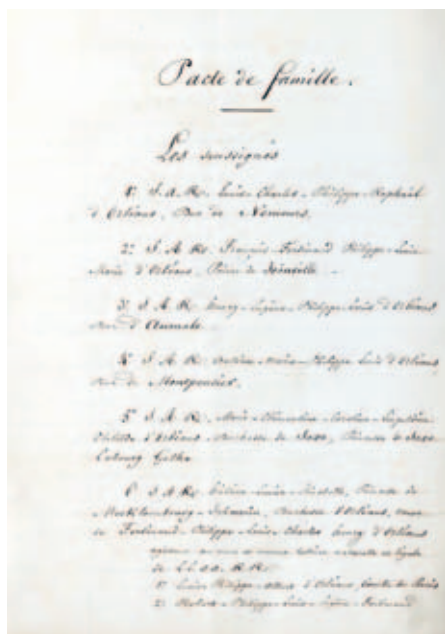 Pacte de famille.
Les soussignés
1º S. A. R. Louis-Charles-Philippe-Raphaël
d'Orléans, Duc de Nemours.
2º S. A. R. François-Ferdinand-Philippe-Louis-
Marie d'Orléans, Prince de Joinville.
3º S. A. R. Henry-Eugène-Philippe-Louis d'Orléans
Duc d'Aumale.
4º S. A. R. Antoine-Marie-Philippe-Louis d'Orléans,
Duc de Montpensier.
5º S. A. R. Marie-Clémentine-Caroline-Léopoldine
Clotilde d'Orléans, Duchesse de Saxe, Princesse de Saxe
Cobourg Gotha
6º S. A. R. Hélène-Louise-Elisabeth, Princesse de
Mecklembourg-Schwerin, Duchesse d'Orléans, veuve
de Ferdinand-Philippe-Louis-Charles-Henry d'Orléans
agissant au nom et comme tutrice naturelle et légale
de LL. AA. RR.
1º Louis-Philippe-Albert d'Orléans, Comte de Paris
2º Robert-Philippe-Louis-Eugène-Ferdinand